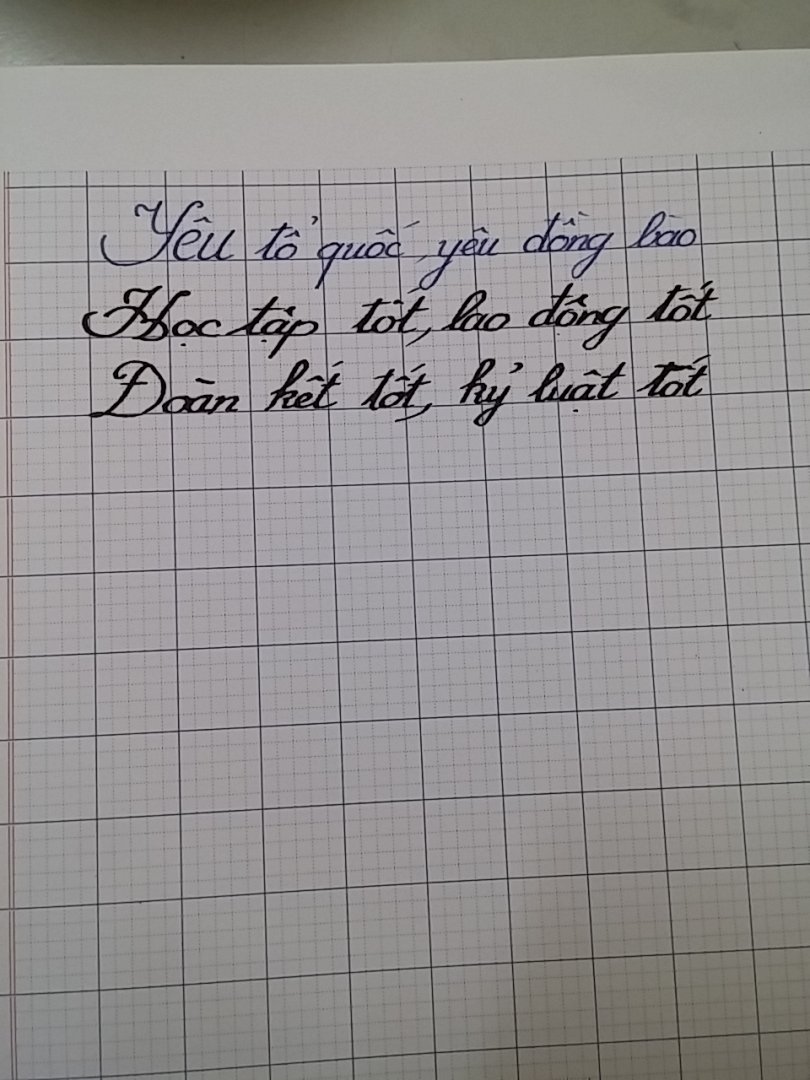 Yêu tổ quốc, yêu đồng bào
Học tập tốt, lao động tốt
Đoàn kết tốt, kỷ luật tốt